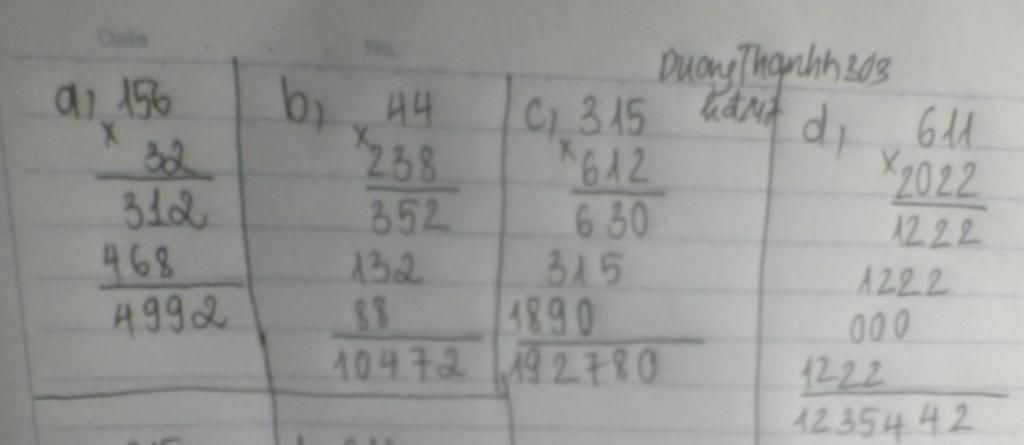 Date
No.
DuongThanhh303
a, 156
x 32
312
468
4992
b, 44
x 238
352
132
88
10472
c, 315
x 612
630
315
1890
192780
d, 611
x 2022
1222
1222
000
1222
1235442